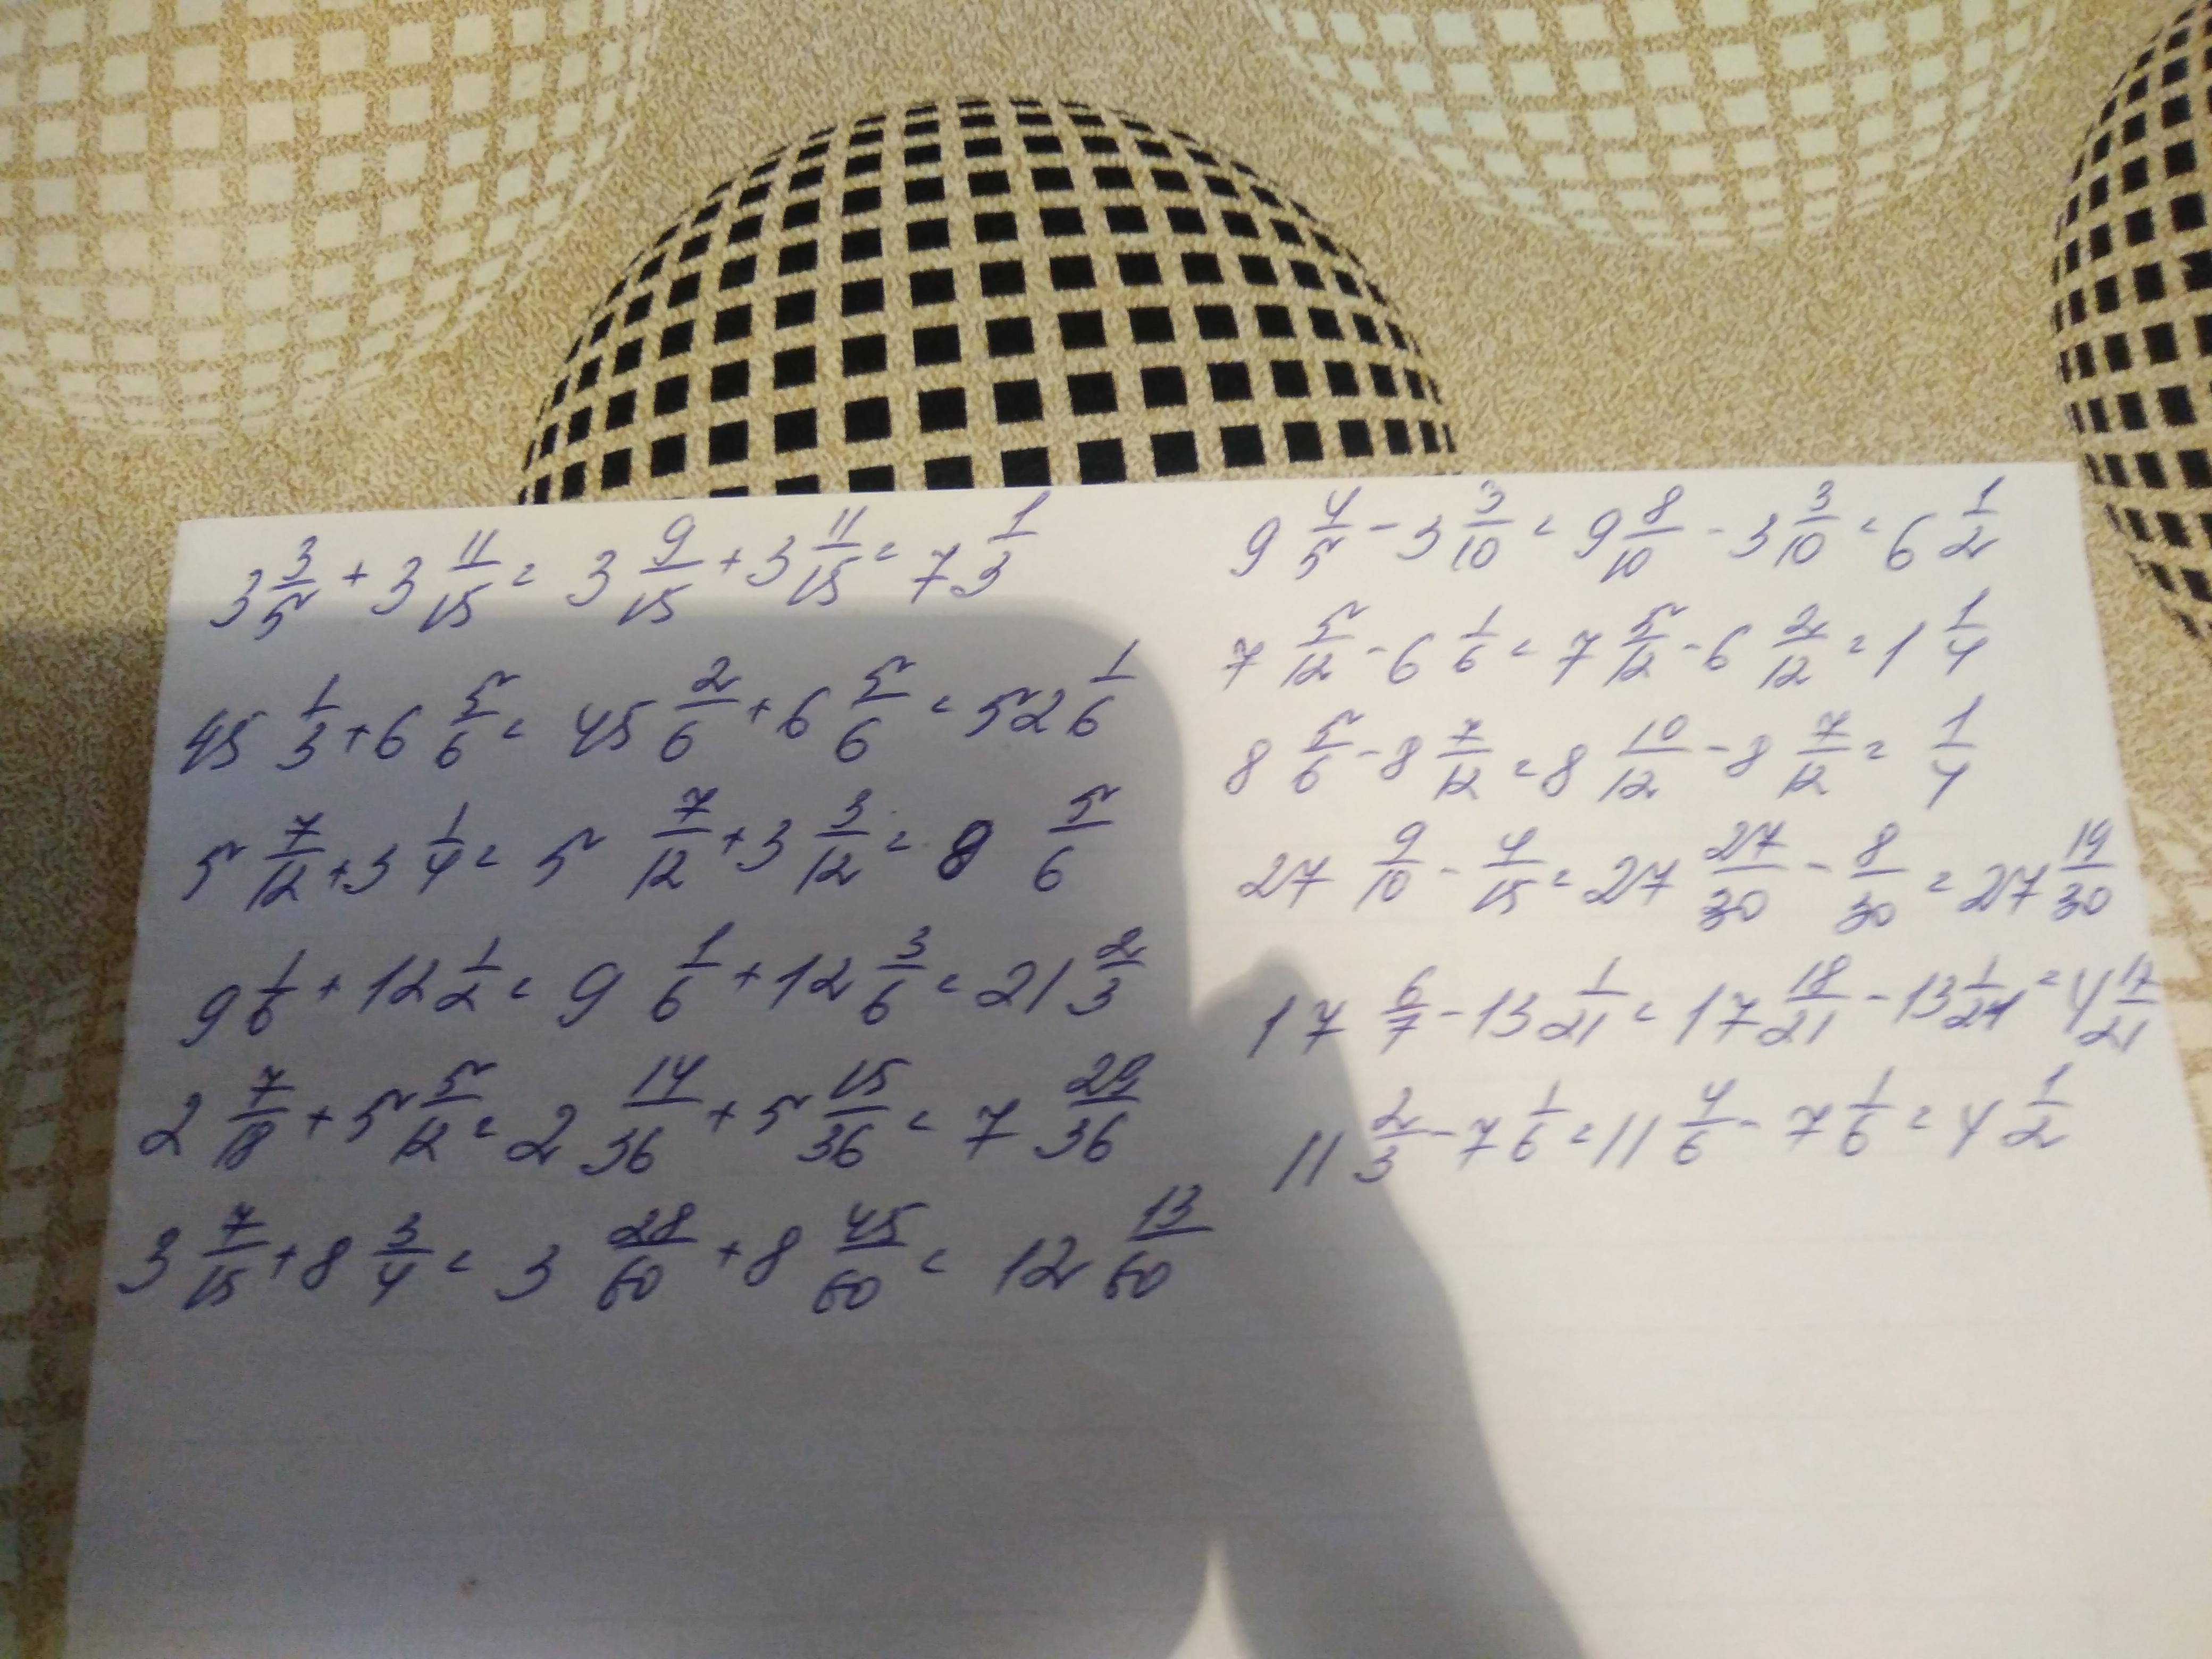 3 3/5 + 3 11/15 = 3 9/15 + 3 11/15 = 7 1/3
45 1/3 + 6 5/6 = 45 2/6 + 6 5/6 = 52 1/6
5 7/12 + 3 1/4 = 5 7/12 + 3 3/12 = 8 5/6
9 1/6 + 12 1/2 = 9 1/6 + 12 3/6 = 21 2/3
2 7/18 + 5 5/12 = 2 14/36 + 5 15/36 = 7 29/36
3 7/15 + 8 3/4 = 3 28/60 + 8 45/60 = 12 13/60
9 4/5 - 3 3/10 = 9 8/10 - 3 3/10 = 6 1/2
7 5/12 - 6 1/6 = 7 5/12 - 6 2/12 = 1 1/4
8 5/6 - 8 7/12 = 8 10/12 - 8 7/12 = 1/4
27 9/10 - 4/15 = 27 27/30 - 8/30 = 27 19/30
17 6/7 - 13 1/21 = 17 18/21 - 13 1/21 = 4 17/21
11 2/3 - 7 1/6 = 11 4/6 - 7 1/6 = 4 1/2